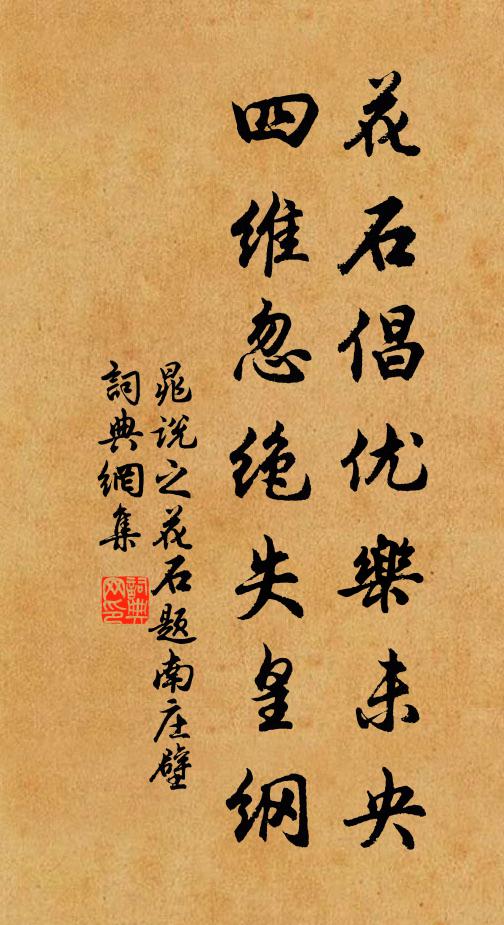 花石倡优樂未央
四维忽绝失皇纲
晁说之花石题南庄壁
詞典網集
詞典网印